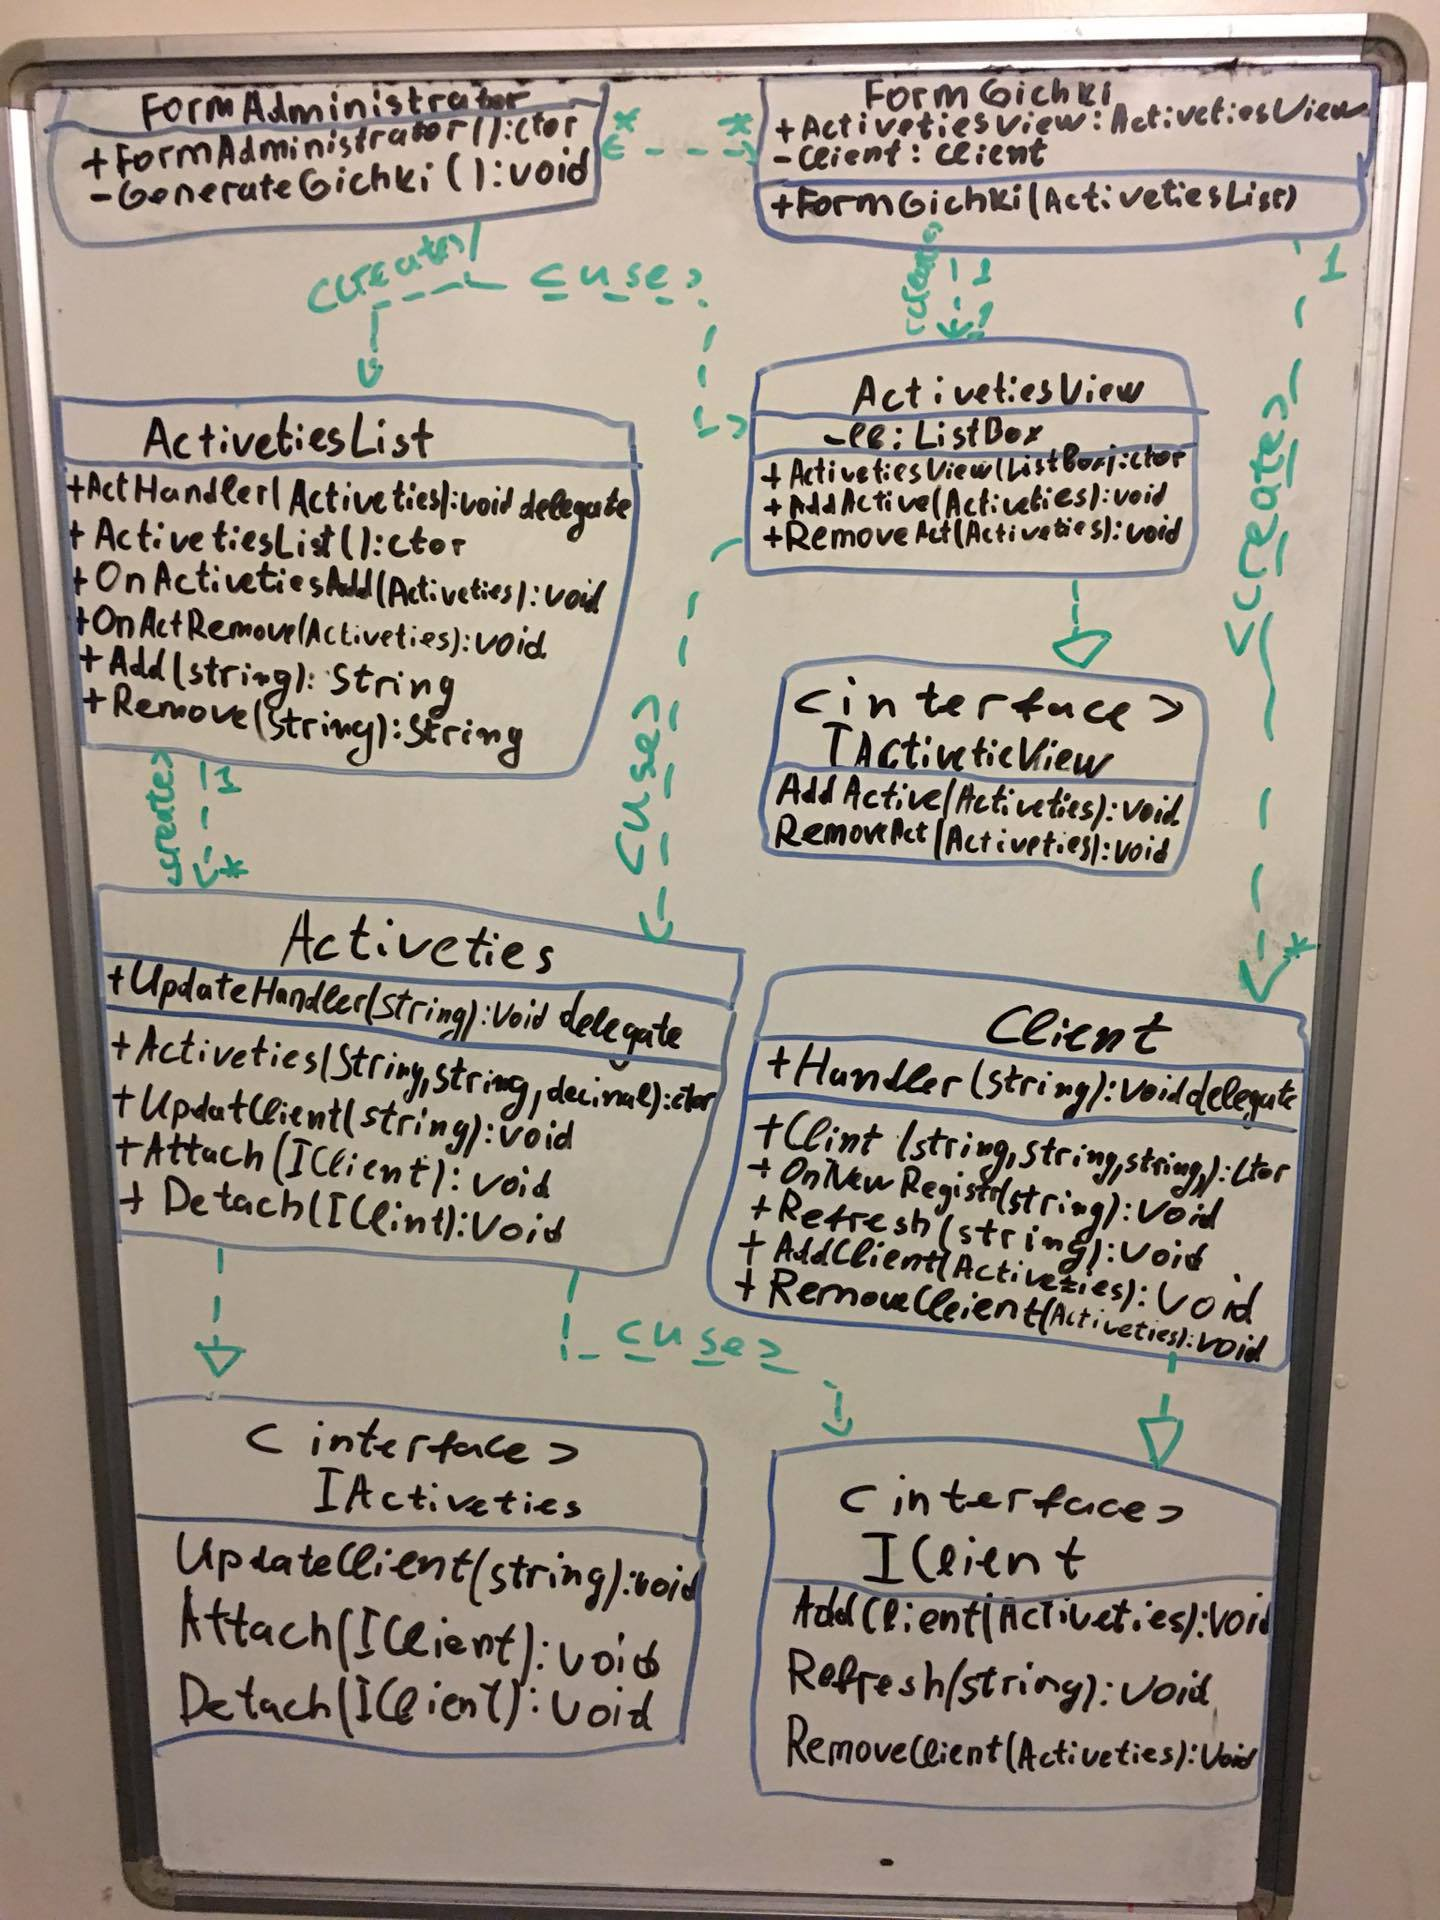 FormAdministrator
+FormAdministrator():ctor
-GenerateGichki():void
* *
FormGichki
+ActivetiesView:ActivetiesView
-Client:Client
+FormGichki(ActivetiesList)
<create>
<use>
<create>
1
1
1
<create>
*
ActivetiesList
+ActHandler(Activeties):void delegate
+ActivetiesList():ctor
+OnActivetiesAdd(Activeties):void
+OnActRemove(Activeties):void
+Add(string):String
+Remove(String):String
ActivetiesView
-ll:ListBox
+ActivetiesView(ListBox):ctor
+AddActive(Activeties):void
+RemoveAct(Activeties):void
<use>
<interface>
IActivetieView
AddActive(Activeties):void
RemoveAct(Activeties):void
<create>
1
*
Activeties
+UpdateHandler(string):void delegate
+Activeties(String,string,decimal):ctor
+UpdatClient(string):void
+Attach(IClient):void
+Detach(IClint):void
Client
+Handler(string):void delegate
+Clint(string,string,string,):ctor
+OnNewRegistr(string):void
+Refresh(string):void
+AddClient(Activeties):void
+RemoveClient(Activeties):void
<use>
<interface>
IActiveties
UpdateClient(string):void
Attach(IClient):void
Detach(IClient):void
<interface>
IClient
AddClient(Activeties):void
Refresh(string):void
RemoveClient(Activeties):void